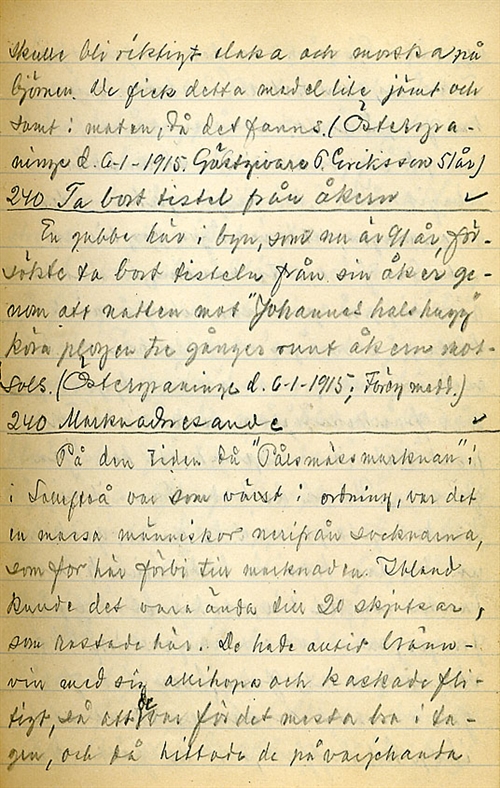 skulle bli riktigt elaka och morska på
björnen. De fick detta medel lite jämt och
samt i maten, då det fanns. (Östergra-
ninge d. 6-1-1915. Gästgivare P. Eriksson 51 år)
240. Ta bort tistel från åkern ✓
En gubbe här i byn, som nu är 91 år, för-
sökte ta bort tisteln från sin åker ge-
nom att natten mot "Johannes halshugg"
köra plogen tre gånger runt åkern mot-
sols. (Östergraninge d. 6-1-1915; Föreg. medd.)
240 Marknadsresande ✓
På den tiden då "Pålsmässmarknan" i
i Sollefteå var som värst i ordning, var det
en massa människor nerifrån socknarna,
som for här förbi till marknaden. Ibland
kunde det vara ända till 20 skjutsar,
som rastade här. De hade alltid bränn-
vin med sig allihopa och kaskade fli-
tigt, så att de var för det mesta bra i ta-
gen, och då hittade de på varjehanda